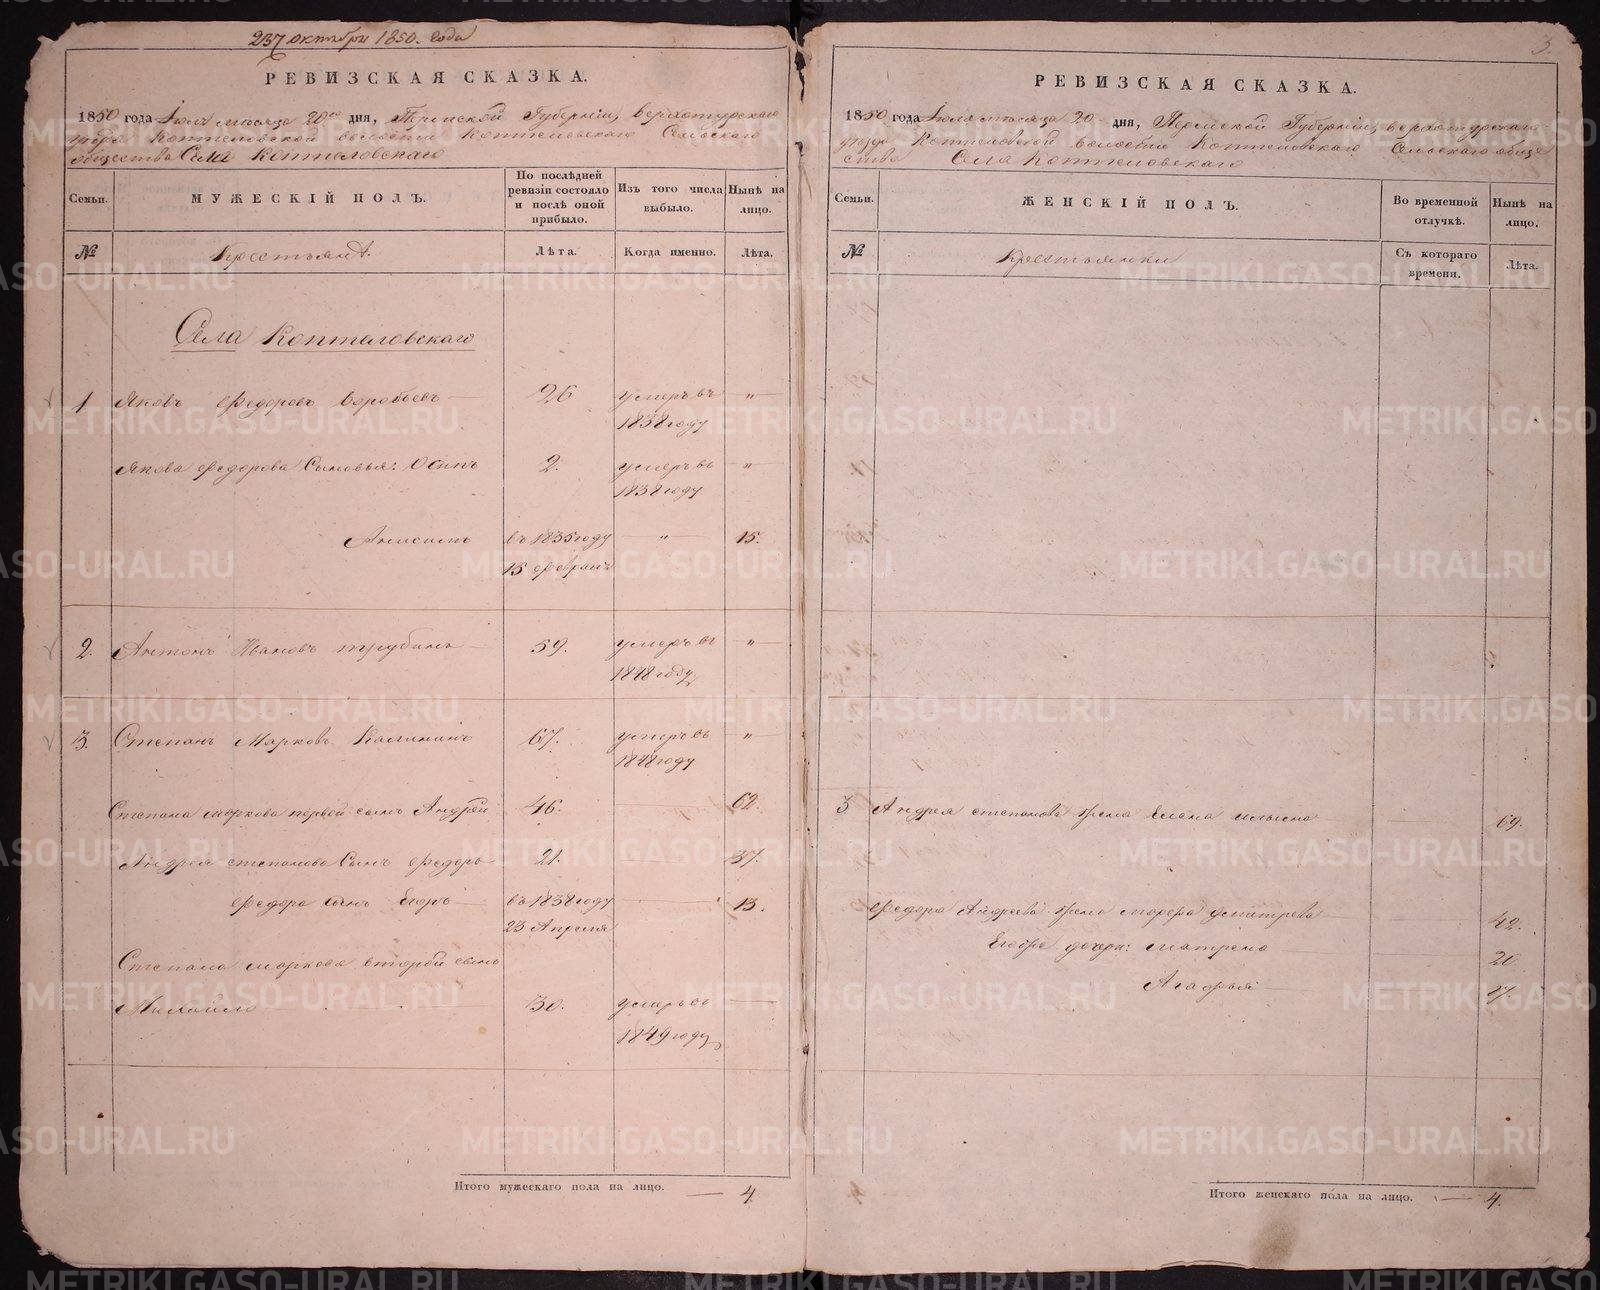 237 октября 1850. года
РЕВИЗСКАЯ СКАЗКА.
1850 года Июля месяца 20го дня, Пермской Губернии, верхотурскаго
уезда Коптеловской волости Коптеловскаго Сельскаго
общества Села Коптеловскаго
Семьи.
МУЖЕСКІЙ ПОЛЪ.
По послѣдней ревизіи состояло и послѣ оной прибыло.
Изъ того числа выбыло.
Нынѣ на лицо.
№
Крестьянъ.
Лѣта.
Когда именно.
Лѣта.
Села Коптеловскаго
1 Яковъ Федоровъ Воробьевъ — 26 умеръ въ „
1838 году
Якова Федорова Сыновья: Осипъ 2. умеръ въ „
1838 году
Анисимъ въ 1835 году „ 15.
15 февраля
2. Антонъ Ивановъ трубинъ 59. умеръ въ „
1848 году
3. Степанъ Марковъ Калининъ 67. умеръ въ „
1848 году
Степана маркова первой сынъ Андрей 46. 62.
Андрея степанова Сынъ Федоръ 21. 37.
Федора сынъ Егоръ въ 1838 году 13.
23 Апреля
Степана маркова второй сынъ
Михайло 30. умеръ въ
1849 году
Итого мужескаго пола на лицо. — 4.
3.
РЕВИЗСКАЯ СКАЗКА.
1850 года Июля месяца 20 дня, Пермской Губернии, верхотурскаго
уезда Коптеловской волости Коптеловскаго Сельскаго обще
ства Села Коптеловскаго
Семьи.
ЖЕНСКІЙ ПОЛЪ.
Во временной отлучкѣ.
Нынѣ на лицо.
№
Крестьянки
Съ котораго времени.
Лѣта.
3 Андрея степанова жена Елена 69.
Федора Андреева жена Дмитрева 42.
дочери: матрена 20
Агафья 17.
Итого женскаго пола на лицо. — 4.
METRIKI.GASO-URAL.RU